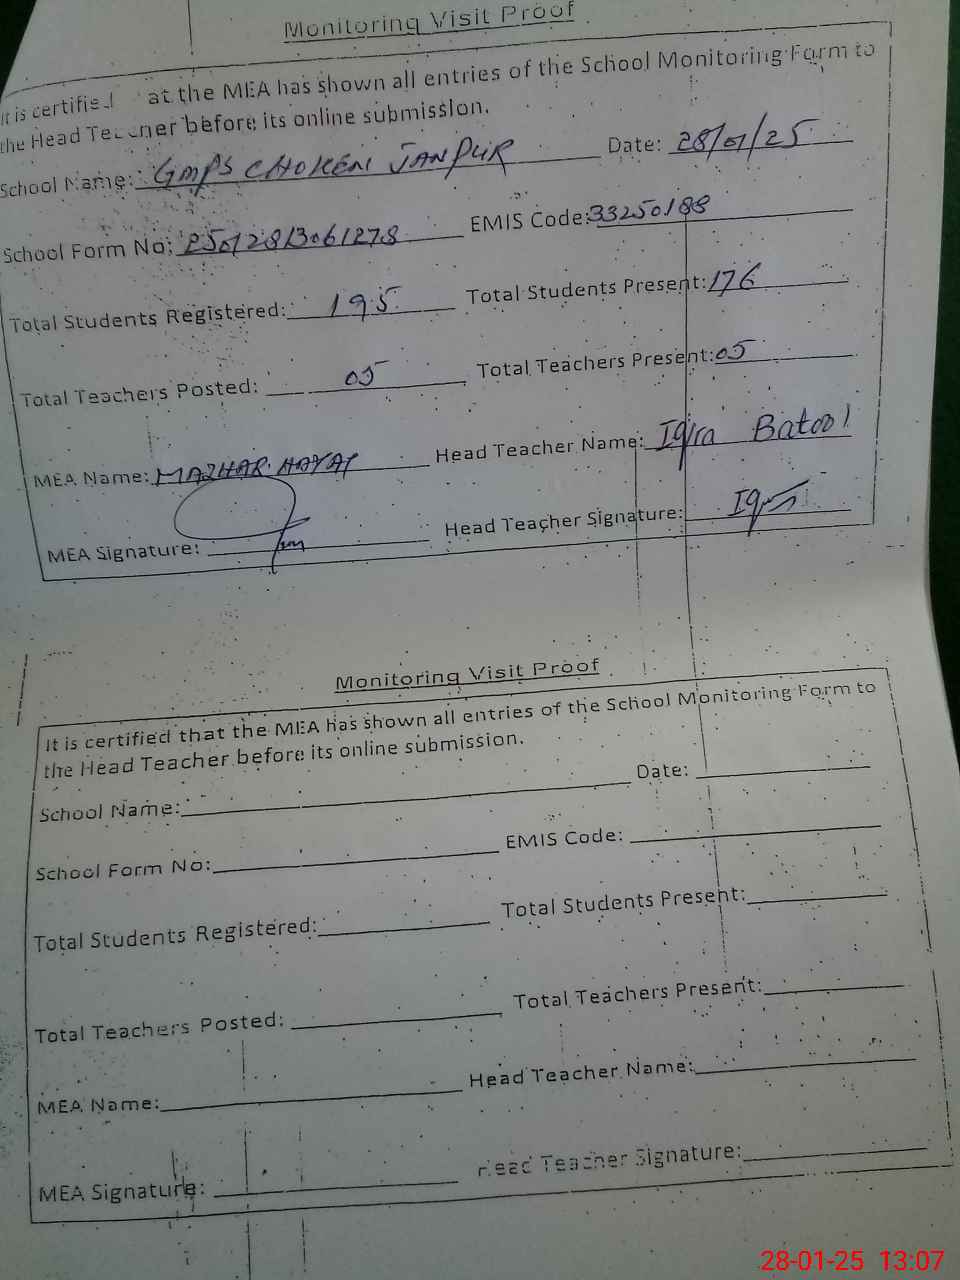 Monitoring Visit Proof
It is certified at the MEA has shown all entries of the School Monitoring Form to
the Head Teacher before its online submission.
School Name: GMPS CHOKENI JANPUR Date: 28/01/25
School Form No: 25012813061278 EMIS Code: 33250188
Total Students Registered: 195 Total Students Present: 176
Total Teachers Posted: 05 Total Teachers Present: 05
MEA Name: MAZHAR HAYAT Head Teacher Name: Iqra Batool
MEA Signature: Head Teacher Signature: Iqra
Monitoring Visit Proof
It is certified that the MEA has shown all entries of the School Monitoring Form to
the Head Teacher before its online submission.
School Name: Date:
School Form No: EMIS Code:
Total Students Registered: Total Students Present:
Total Teachers Posted: Total Teachers Present:
MEA Name: Head Teacher Name:
MEA Signature: Head Teacher Signature:
28-01-25 13:07